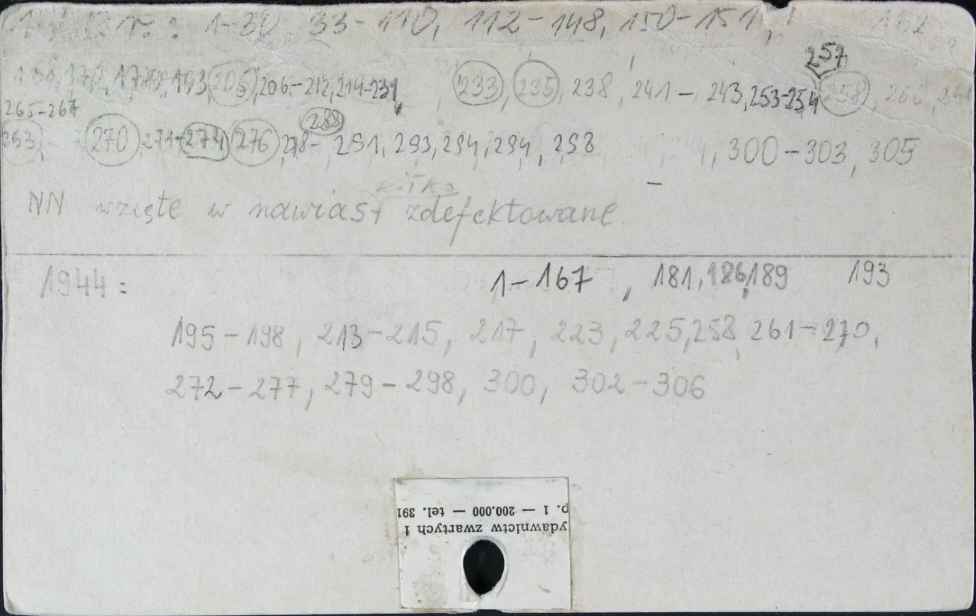 r.: 1-30 33-110, 112-148, 150-151,
257
193, 205, 206-212, 214-231, 233, 235, 238, 241-243, 253-254
265-267
289
263, 270, 274, 276, 291, 293, 294, 294, 298 , 300-303, 305
NN wzięte w nawiasy zdefektowane
1944: 1-167, 181, 186, 189 193
195-198, 213-215, 217, 223, 225, 258, 261-270,
272-277, 279-298, 300, 302-306
ydawnictw zwartych 1
p. 1 — 200.000 — tel. 391